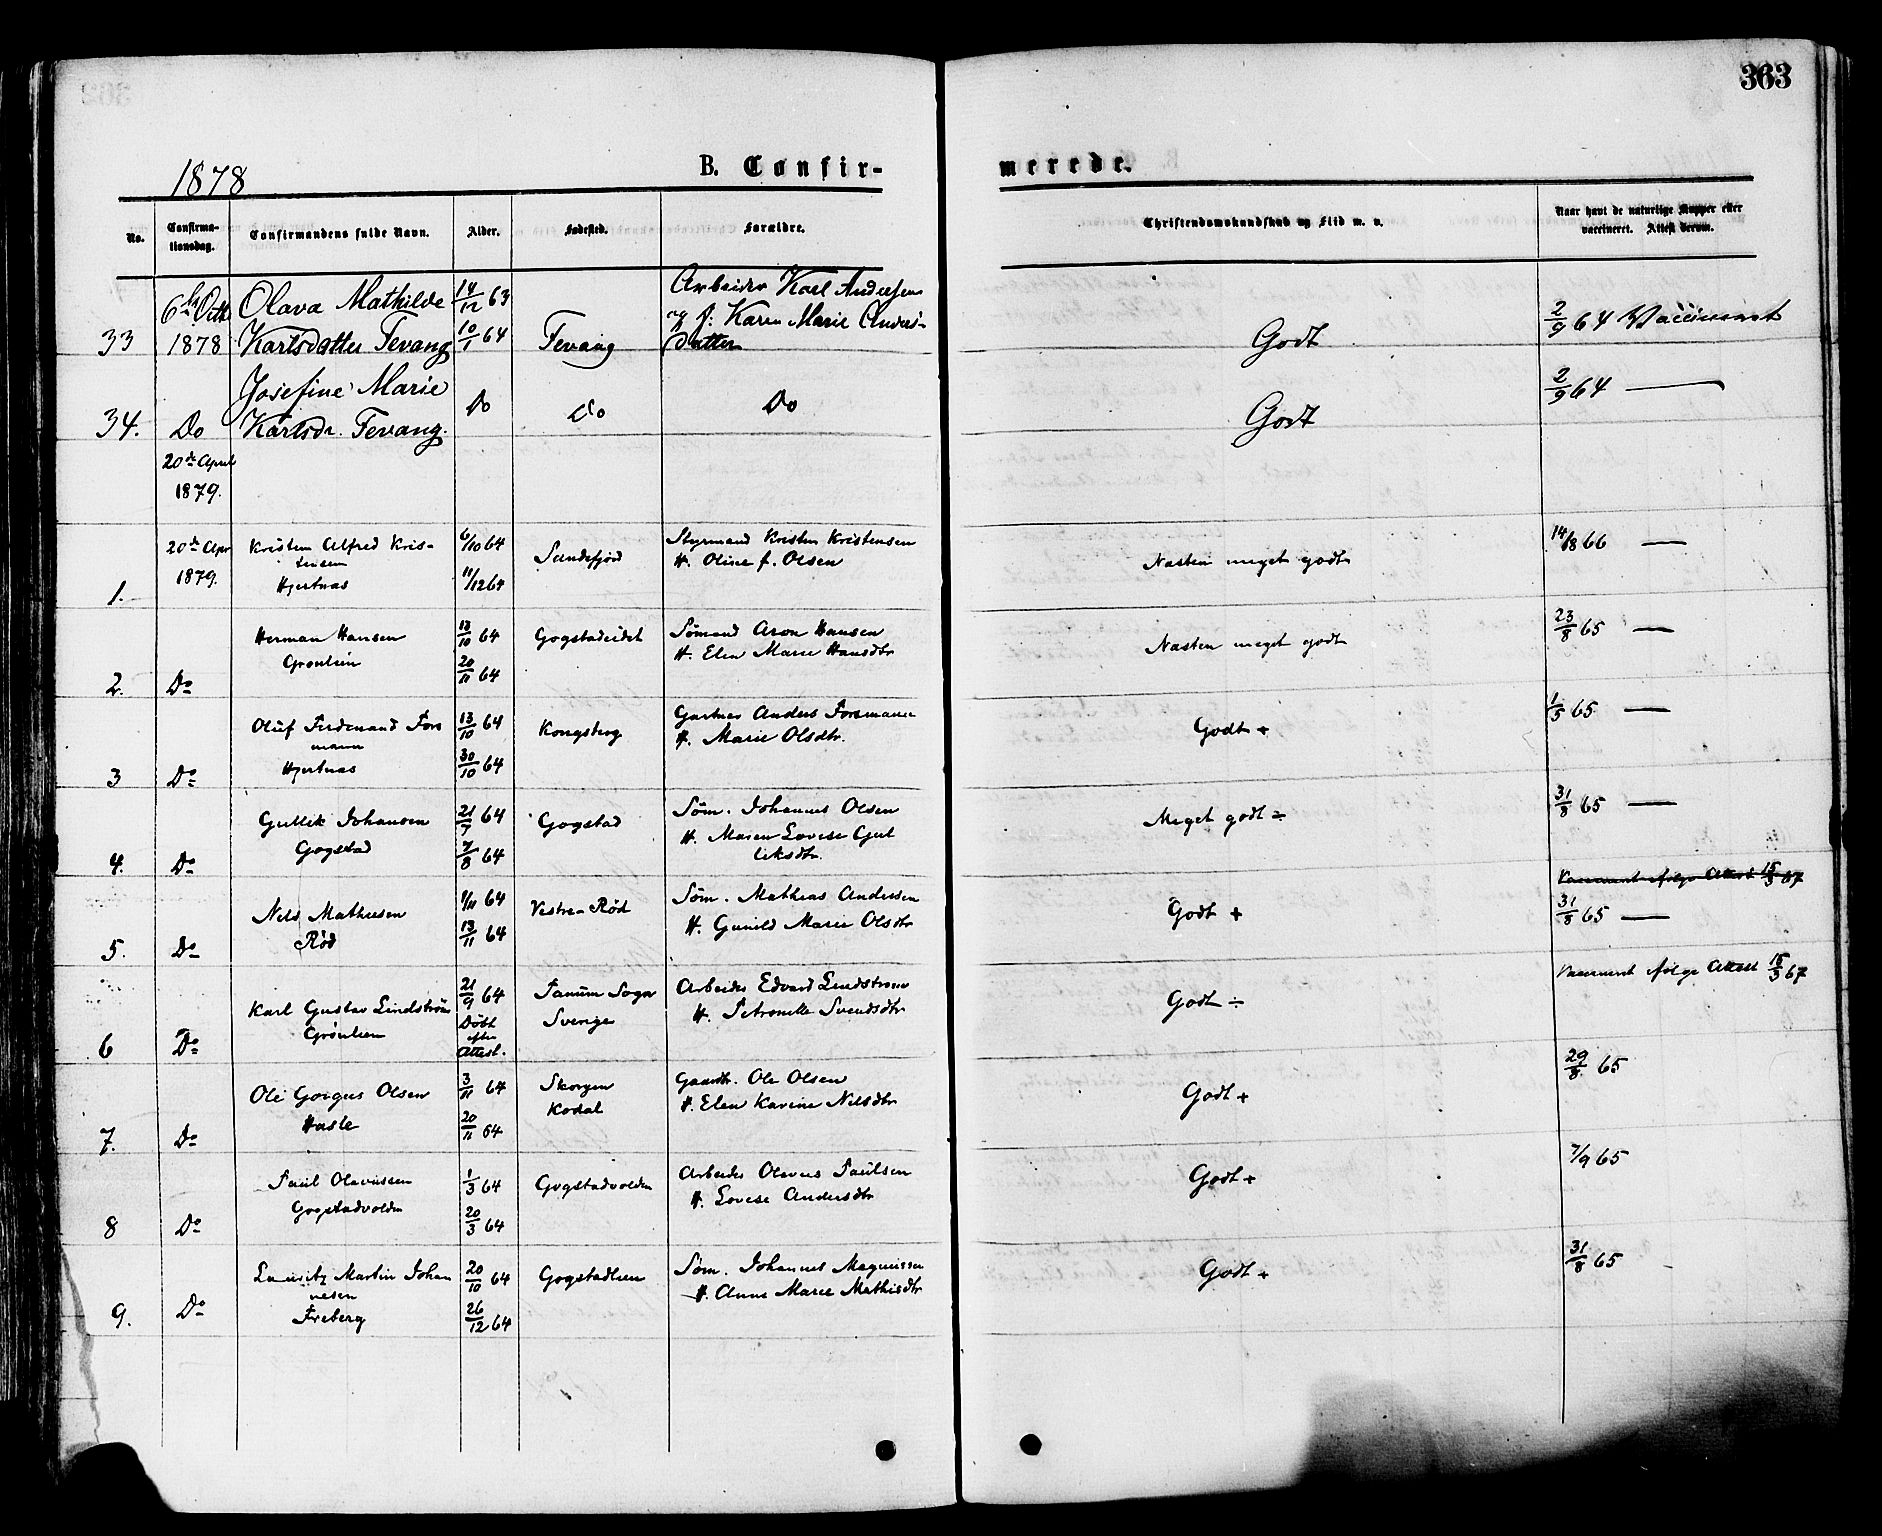 363
1878
B. Confir-
merede.
No.
Confirma-
tionsdag.
Confirmandens fulde Navn.
Alder.
Fødested.
Forældre.
Christendomskundskab og Flid m. v.
Naar havt de naturlige Kopper eller
vaccineret. Attest derom.
33
6te Octb
1878
Olava Mathilde
Karlsdatter Tevang
14/12 63
10/1 64
Tevang
Arbeider Karl Andersen
og f: Karen Marie Anders-
datter
Godt
2/9 64 Vaccineret
34.
Do
Josefine Marie
Karlsdr. Tevang.
Do
do
Do
Godt
2/9 64 —
20de April
1879.
1.
20de Apr
1879.
Kristen Alfred Kris-
tensen
Hjertnæs
6/10 64
11/12 64
Sandefjord
Styrmand Kristen Kristensen
H. Oline f. Olsen
Næsten meget godt
14/8 66 —
2.
Do
Herman Hansen
Grønlien
13/10 64
20/11 64
Gogstadeidet
Sømand Aron Hansen
H. Elen Marie Hansdtr
Næsten meget godt
23/8 65 —
3
Do
Oluf Ferdenand Fors
mann
Hjertnæs
13/10 64
30/10 64
Kongsberg
Gartner Anders Forsmann
H. Marie Olsdtr.
Godt +
1/5 65 —
4.
Do
Gullik Johansen
Gogstad
21/7 64
7/8 64
Gogstad
Søm. Johannes Olsen
H. Maren Lovise Gul
liksdtr.
Meget godt ÷
31/8 65 —
5.
Do
Nils Mathisen
Rød
1/11 64
13/11 64
Vestre Rød
Søm. Mathias Andersen
H. Gunild Marie Olsdtr
Godt +
Vaccineret ifølge Attest 15/3 67
31/8 65 —
6
Do
Karl Gustav Lindstrøm
Grønlien
21/9 64
Døbt
efter
Attest.
Tanum Sogn
Sverige
Arbeider Edvard Lindstrøm
H. Petronelle Svendsdtr
Godt ÷
Vaccineret ifølge Attest 15/3 67
7.
Do
Ole Gorgus Olsen
Hasle
3/11 64
20/11 64
Skorgen
Kodal
Gaardbr. Ole Olsen
H. Elen Karine Nilsdtr
Godt +
29/8 65
8
Do
Paul Olavussen
Gogstadvolden
1/3 64
20/3 64
Gogstadvolden
Arbeider Olavus Paulsen
H. Lovise Andersdtr
Godt +
7/9 65
9.
Do
Lauritz Martin Johan
nesen
Freberg
20/10 64
26/12 64
Gogstadlien
Søm. Johannes Magnussen
H. Anne Marie Mathisdtr
Godt +
31/8 65